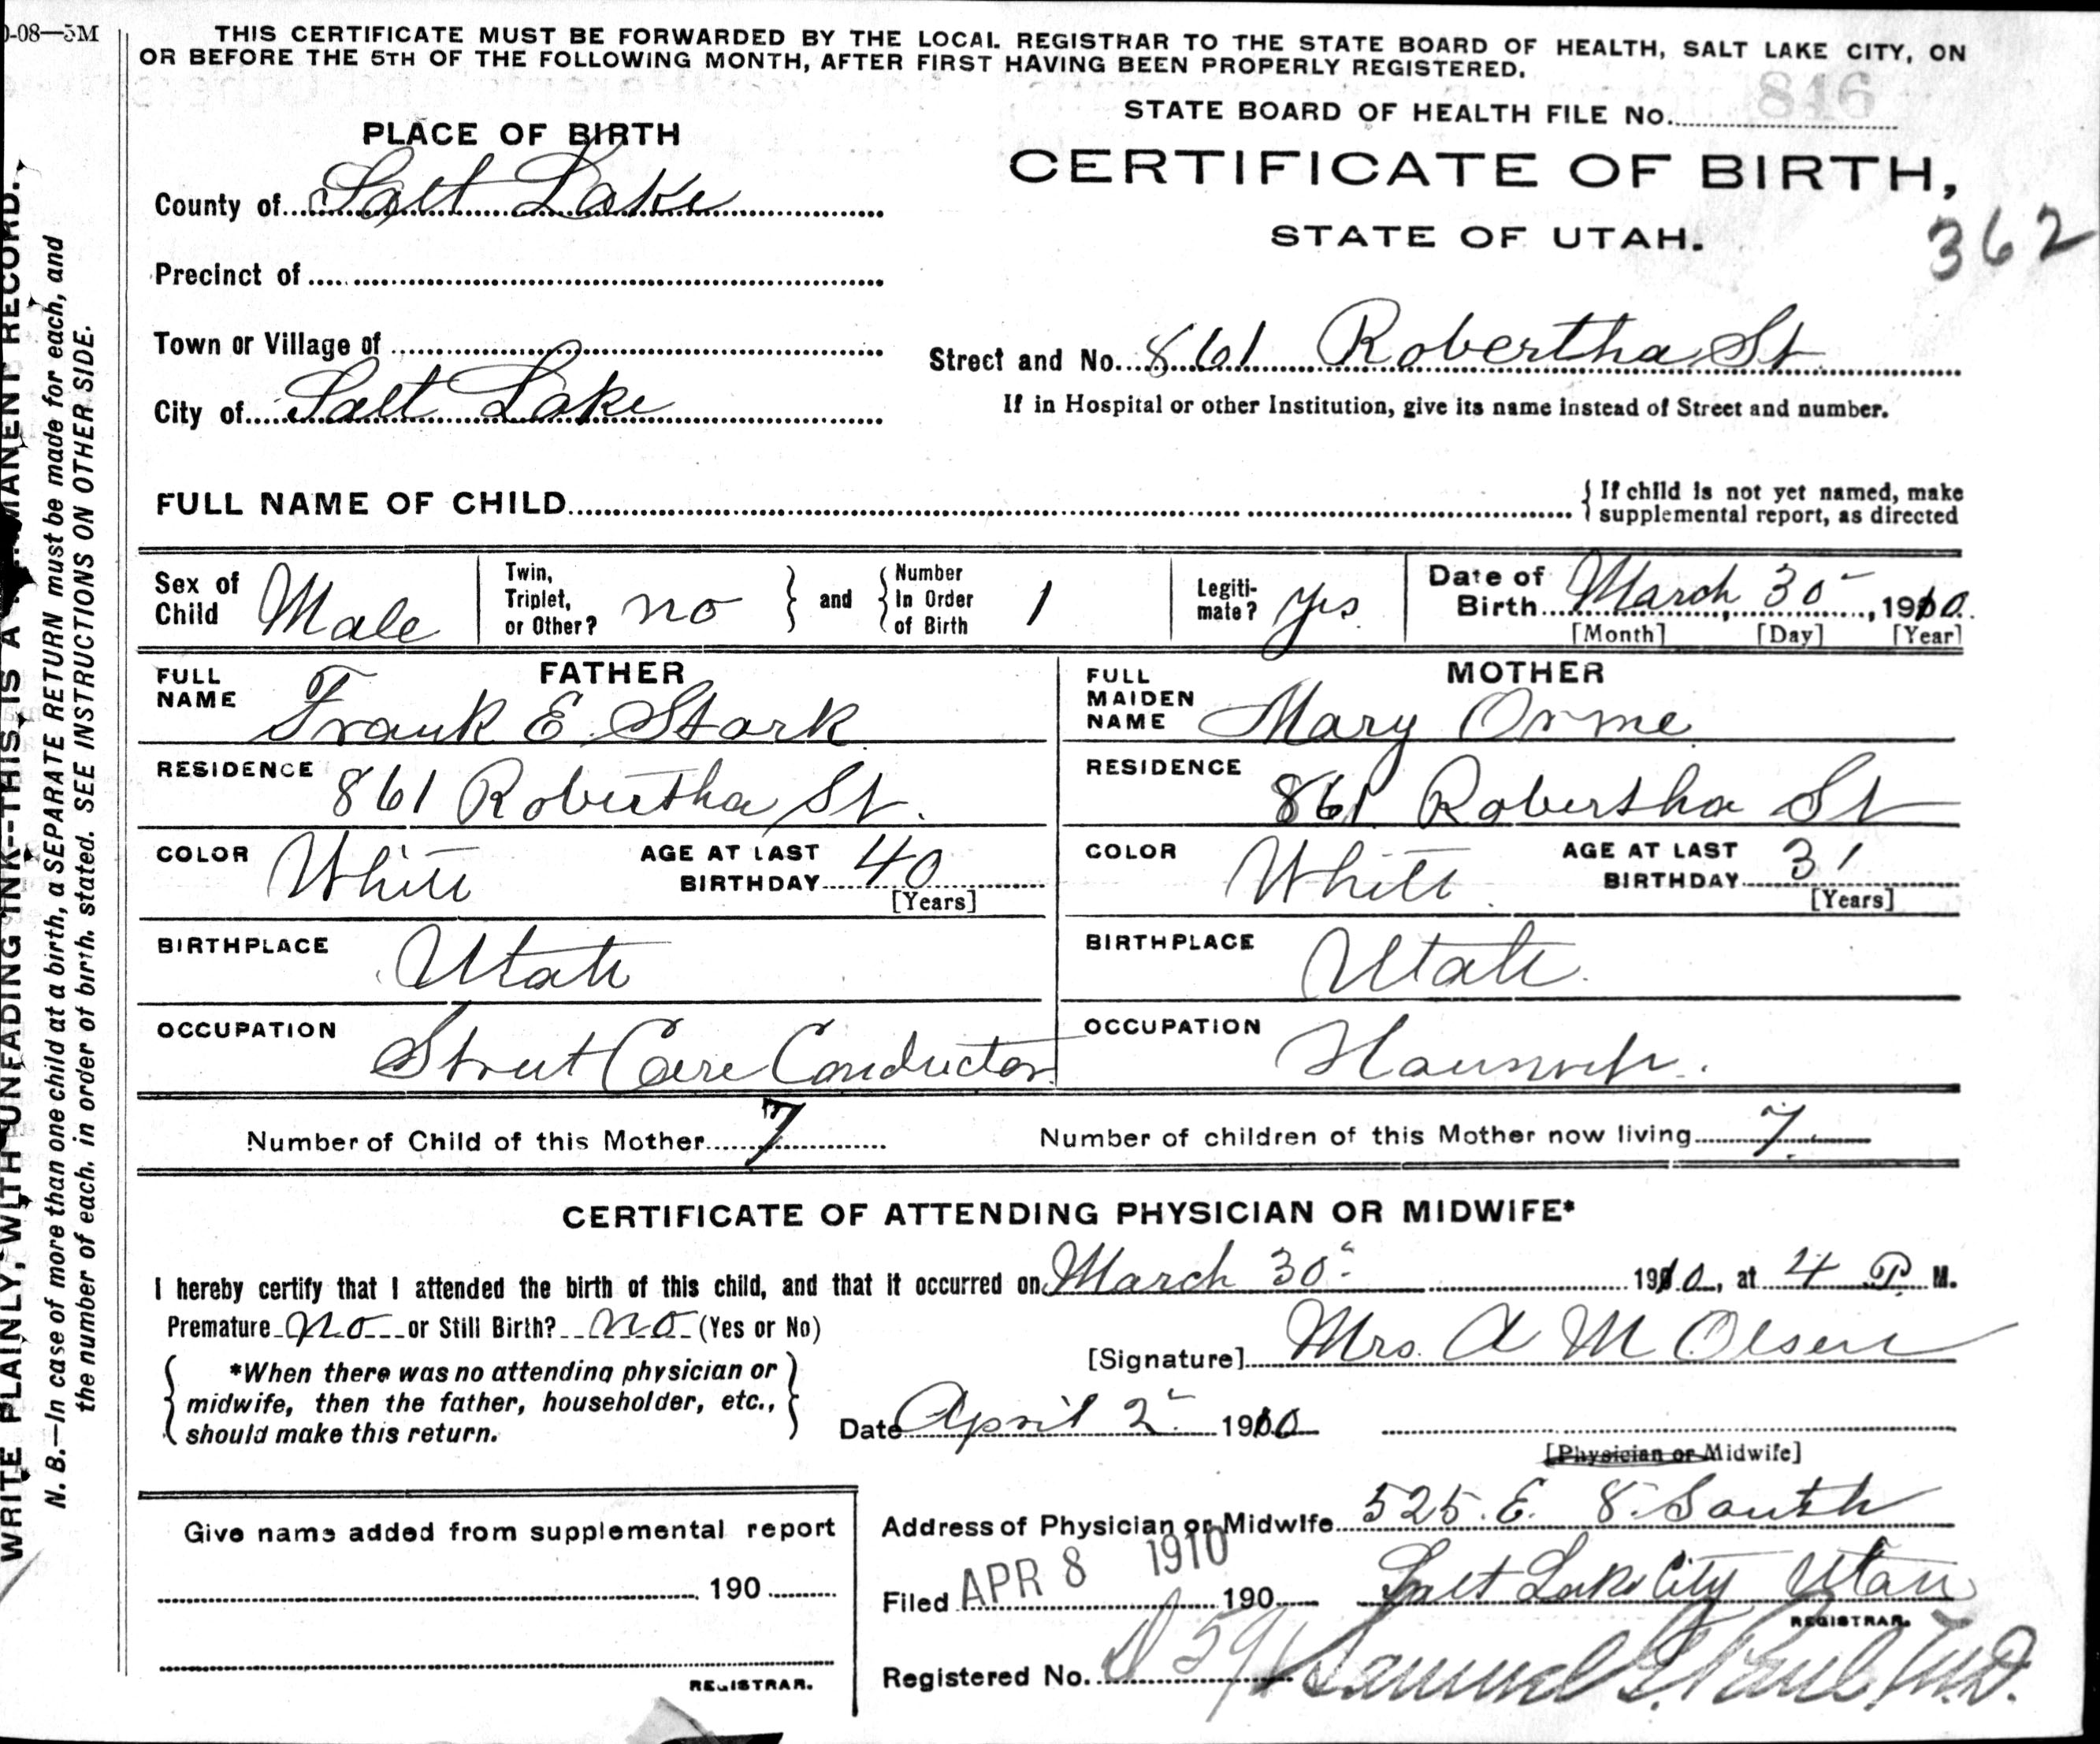 0-08—5M
THIS CERTIFICATE MUST BE FORWARDED BY THE LOCAL REGISTRAR TO THE STATE BOARD OF HEALTH, SALT LAKE CITY, ON
OR BEFORE THE 5TH OF THE FOLLOWING MONTH, AFTER FIRST HAVING BEEN PROPERLY REGISTERED.
STATE BOARD OF HEALTH FILE No. 846
PLACE OF BIRTH
CERTIFICATE OF BIRTH,
STATE OF UTAH.
362
County of Salt Lake
Precinct of
Town or Village of
Street and No. 861 Robertha St
City of Salt Lake
If in Hospital or other Institution, give its name instead of Street and number.
FULL NAME OF CHILD
{ If child is not yet named, make
supplemental report, as directed
Sex of Child Male
Twin, Triplet, or Other? no } and { Number In Order of Birth 1
Legiti-mate? yes
Date of Birth March 30, 1910
[Month] [Day] [Year]
FATHER
FULL NAME Frank E. Stark
RESIDENCE 861 Robertha St.
COLOR White AGE AT LAST BIRTHDAY 40
[Years]
BIRTHPLACE Utah
OCCUPATION Street Care Conductor
MOTHER
FULL MAIDEN NAME Mary Orme
RESIDENCE 861 Robertha St
COLOR White AGE AT LAST BIRTHDAY 31
[Years]
BIRTHPLACE Utah
OCCUPATION Housewife.
Number of Child of this Mother 7
Number of children of this Mother now living 7
CERTIFICATE OF ATTENDING PHYSICIAN OR MIDWIFE*
I hereby certify that I attended the birth of this child, and that it occurred on March 30 1910, at 4 P. M.
Premature no or Still Birth? no (Yes or No)
[Signature] Mrs. A M Olsen
{ *When there was no attending physician or
midwife, then the father, householder, etc.,
should make this return. }
Date April 2 1910
[Physician or Midwife]
Address of Physician or Midwife 525. E. 8. South
Salt Lake City Utah
Filed APR 8 1910 190
REGISTRAR.
Registered No. D 591 Samuel G. Paul, M.D.
Give name added from supplemental report
190
REGISTRAR.
WRITE PLAINLY, WITH UNFADING INK--THIS IS A PERMANENT RECORD.
N. B.—In case of more than one child at a birth, a SEPARATE RETURN must be made for each, and
the number of each, in order of birth, stated. SEE INSTRUCTIONS ON OTHER SIDE.